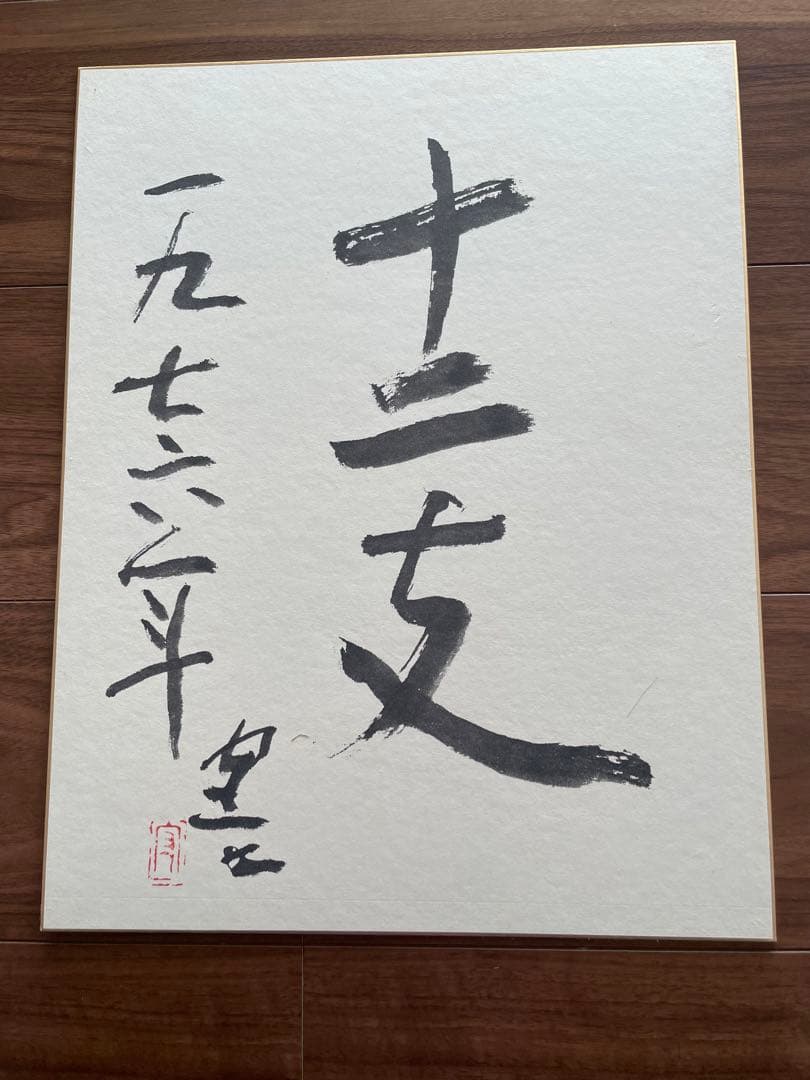 十二支
一九七六年